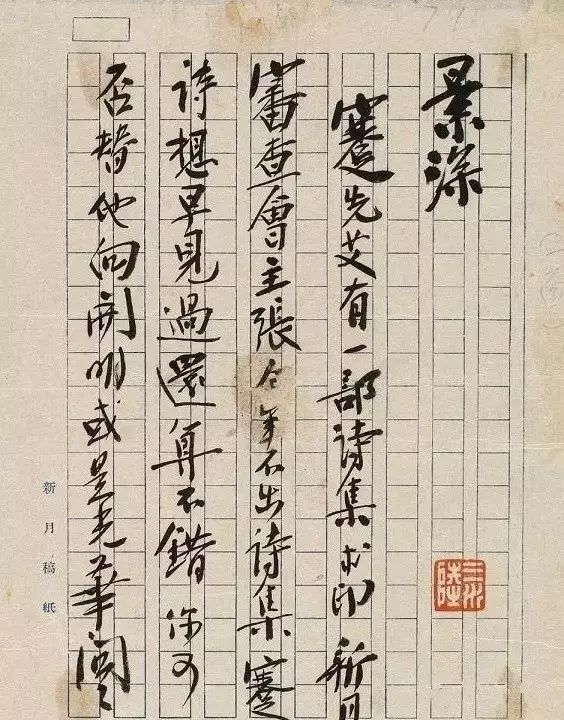 景深
蹇先艾有一部诗集求印新月
審查會主張今年不出诗集蹇
诗想早見過還算不錯你可
否替他向開明或是光華问问
新月稿紙